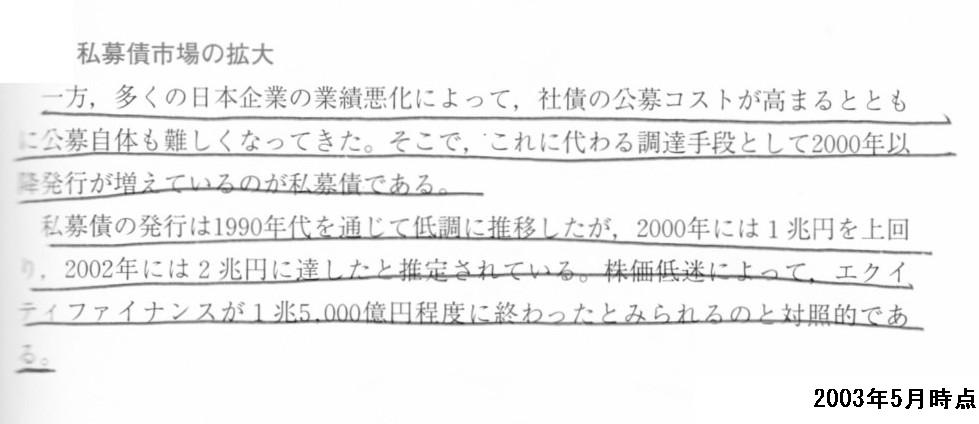 私募債市場の拡大
一方，多くの日本企業の業績悪化によって，社債の公募コストが高まるととも
に公募自体も難しくなってきた。そこで，これに代わる調達手段として2000年以
降発行が増えているのが私募債である。
私募債の発行は1990年代を通じて低調に推移したが，2000年には１兆円を上回
り，2002年には２兆円に達したと推定されている。株価低迷によって，エクイ
ティファイナンスが１兆5,000億円程度に終わったとみられるのと対照的であ
る。
2003年5月時点